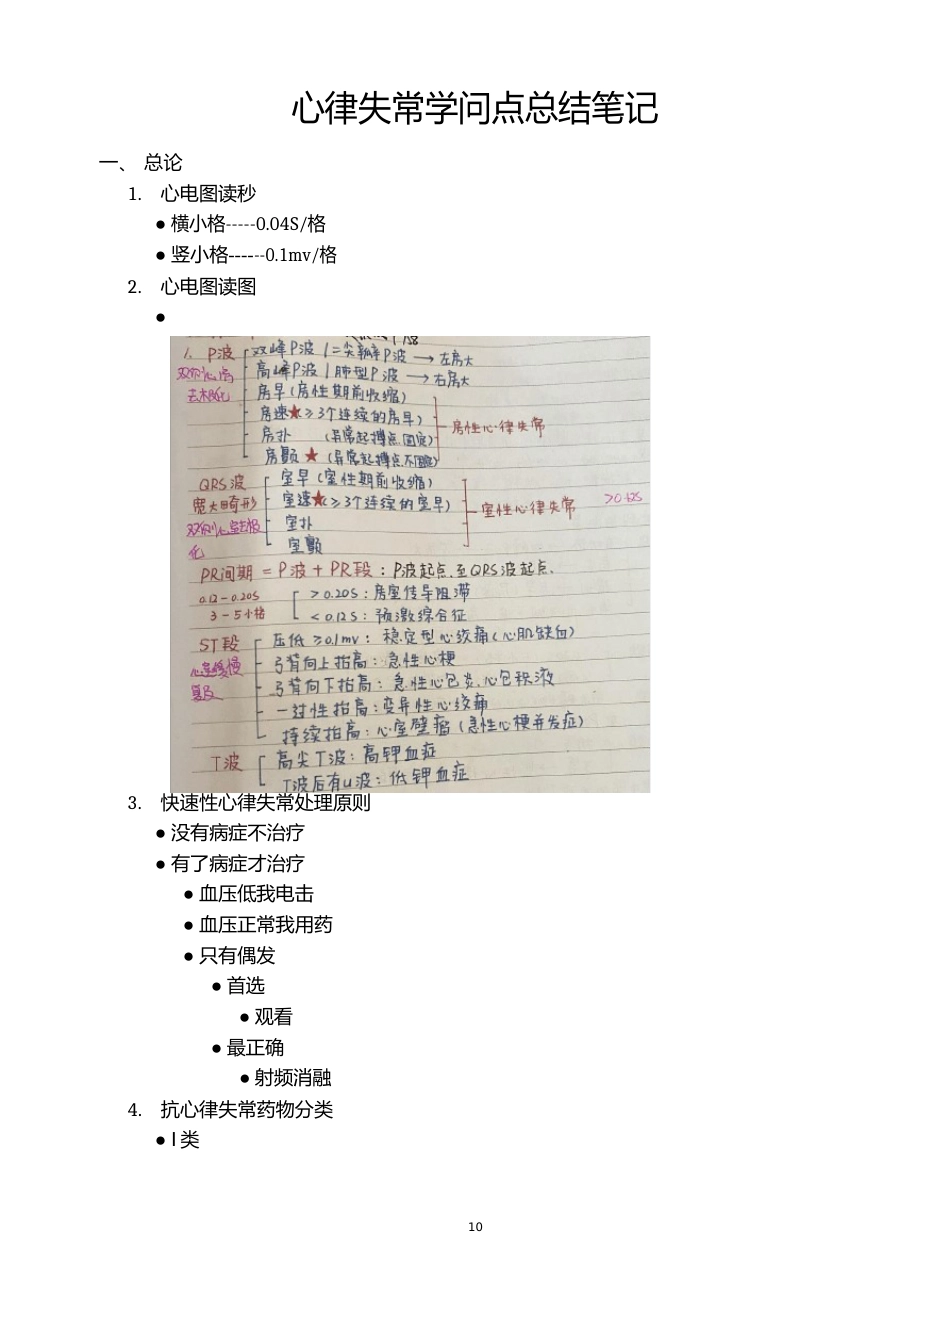 心律失常学问点总结笔记
一、 总论
1. 心电图读秒
● 横小格-----0.04S/格
● 竖小格------0.1mv/格
2. 心电图读图
●
1. P波 双峰P波/二尖瓣P波 → 左房大
双侧心房 高峰P波/肺型P波 → 右房大
去极化 房早(房性期前收缩)
房速★(≥3个连续的房早) 房性心律失常
房扑 (异常起搏点固定)
房颤 ★ (异常起搏点不固定)
QRS波 室早(室性期前收缩)
宽大畸形 室速★(≥3个连续的室早) 室性心律失常 >0.12S
双侧心室去极化 室扑
室颤
PR间期 = P波 + PR段 : P波起点至QRS波起点.
0.12-0.20S >0.20S : 房室传导阻滞
3-5小格 <0.12S : 预激综合征
ST段 压低≥0.1mv : 稳定型心绞痛(心肌缺血)
心室缓慢复极 弓背向上抬高 : 急性心梗
弓背向下抬高 : 急性心包炎.心包积液
一过性抬高 : 变异性心绞痛
持续抬高 : 心室壁瘤 (急性心梗并发症)
T波 高尖T波 : 高钾血症
T波后有u波 : 低钾血症
3. 快速性心律失常处理原则
● 没有病症不治疗
● 有了病症才治疗
● 血压低我电击
● 血压正常我用药
● 只有偶发
● 首选
● 观看
● 最正确
● 射频消融
4. 抗心律失常药物分类
● I 类
10